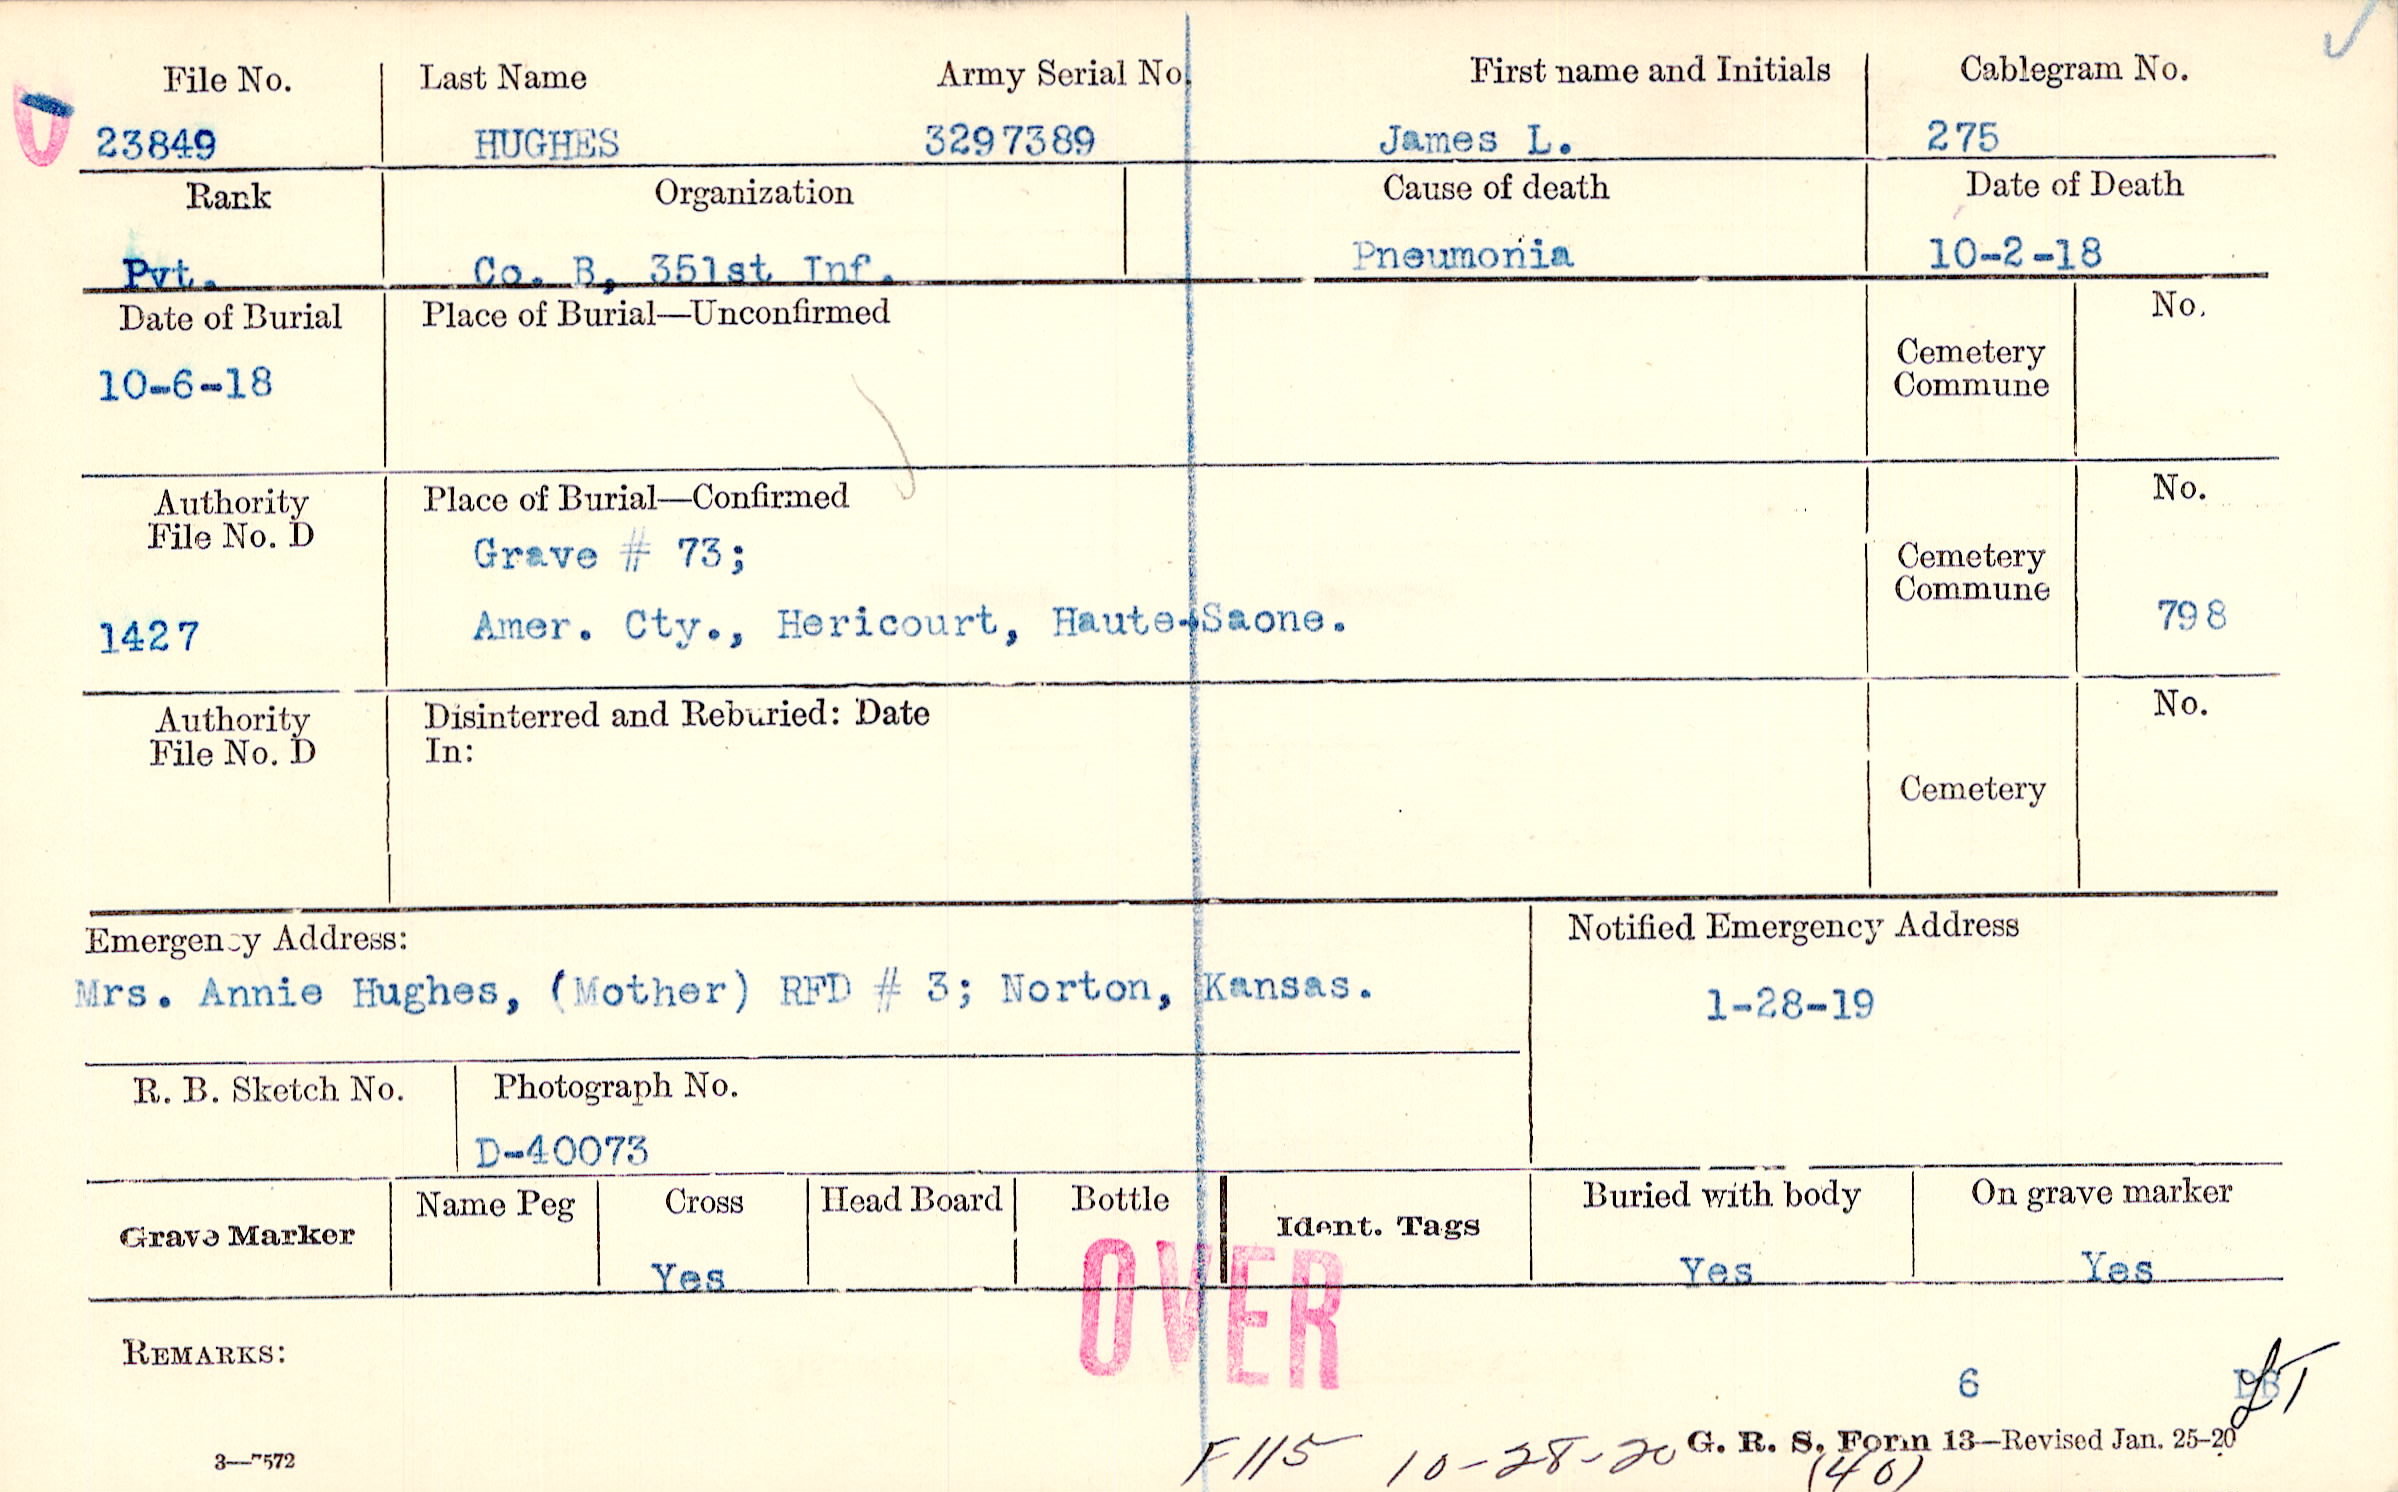 File No. Last Name Army Serial No. First name and Initials Cablegram No.
23849 HUGHES 3297389 James L. 275
Rank Organization Cause of death Date of Death
Pvt. Co. B, 351st Inf. Pneumonia 10-2-18
Date of Burial Place of Burial—Unconfirmed No.
10-6-18 Cemetery
Commune
Authority Place of Burial—Confirmed No.
File No. D
Grave # 73; Cemetery
Commune
1427 Amer. Cty., Hericourt, Haute-Saone. 798
Authority Disinterred and Reburied: Date No.
File No. D In:
Cemetery
Emergency Address: Notified Emergency Address
Mrs. Annie Hughes, (Mother) RFD # 3; Norton, Kansas. 1-28-19
R. B. Sketch No. Photograph No.
D-40073
Grave Marker Name Peg Cross Head Board Bottle Ident. Tags Buried with body On grave marker
Yes Yes Yes
OVER
REMARKS:
6
3—7572 F115 10-28-20 G. R. S. Form 13—Revised Jan. 25-20
(40)